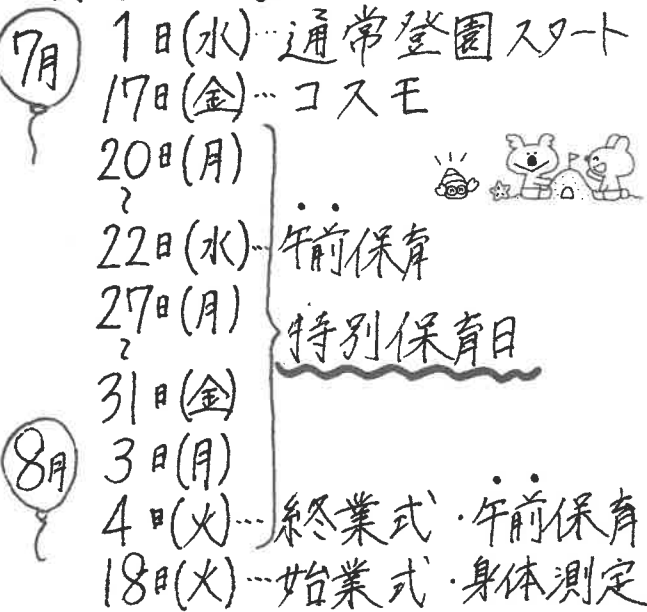 7月 1日(水)…通常登園スタート
17日(金)…コスモ
20日(月)
〜
22日(水)…午前保育
27日(月)
〜
特別保育日
31日(金)
8月 3日(月)
4日(火)…終業式・午前保育
18日(火)…始業式・身体測定